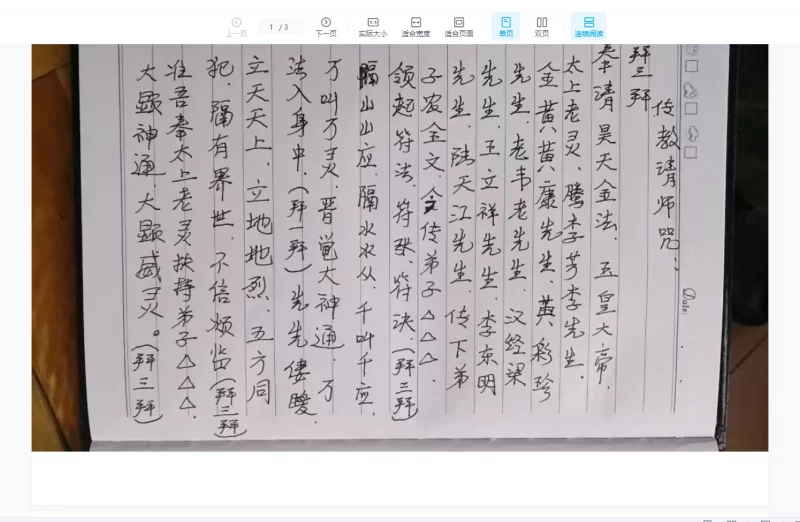 上一页
1 / 3
下一页
实际大小
适合宽度
适合页面
单页
双页
连续阅读
Date:
传教请师咒:
拜三拜
奉请昊天金法、五皇大帝、
太上老灵、腾李芳李先生、
全黄黄康先生、黄彩珍
先生、老韦老先生、汉经梁
先生、王立祥先生、李东明
先生、陆天江先生、传下弟
子农金文、今传弟子△△△、
领超符法、符珠、符决、(拜三拜)
隔山山应、隔水水从、千叫千应、
万叫万灵、晋觉大神通、万
法入身中、(拜一拜)先先
立天天上、立地地烈、五方同
犯、隔有界世、不信烦(拜三拜)
准吾奉太上老灵扶持弟子△△△、
大显神通、大显威灵。(拜三拜)